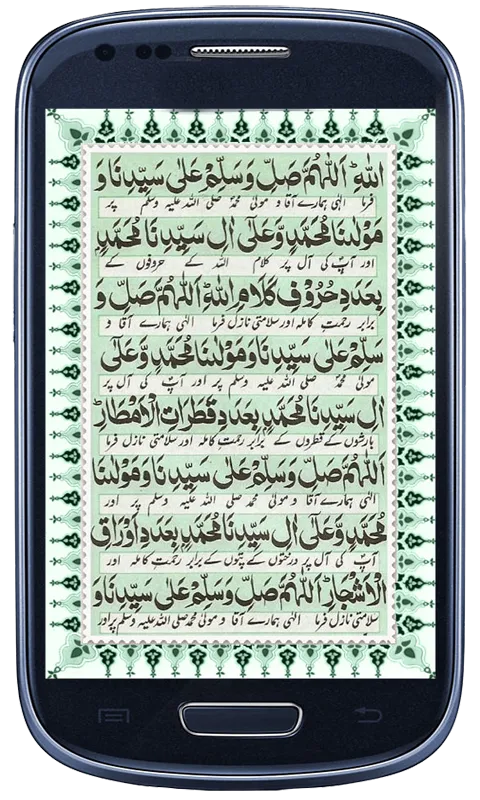 اللهِ ؕ اَللّٰهُمَّ صَلِّ وَسَلِّمْ عَلٰى سَيِّدِنَا وَ
فرما الٰہی ہمارے آقا و مولیٰ محمدؐ صلی اللہ علیہ وسلم پر
مَوْلٰنَا مُحَمَّدٍ وَّعَلٰٓى اٰلِ سَيِّدِنَا مُحَمَّدٍ
اور آپؐ کی آل پر کلام اللہ کے حروفوں کے
بِعَدَدِ حُرُوْفِ كَلَامِ اللهِ اَللّٰهُمَّ صَلِّ وَ
برابر رحمتِ کاملہ اور سلامتی نازل فرما الٰہی ہمارے آقا و
سَلِّمْ عَلٰى سَيِّدِنَا وَمَوْلٰنَا مُحَمَّدٍ وَّعَلٰٓى
مولیٰ محمدؐ صلی اللہ علیہ وسلم پر اور آپؐ کی آل پر
اٰلِ سَيِّدِنَا مُحَمَّدٍ بِعَدَدِ قَطَرَاتِ الْاَمْطَارِ ؕ
بارشوں کے قطروں کے برابر رحمتِ کاملہ اور سلامتی نازل فرما
اَللّٰهُمَّ صَلِّ وَسَلِّمْ عَلٰى سَيِّدِنَا وَمَوْلٰنَا
الٰہی ہمارے آقا و مولیٰ محمد صلی اللہ علیہ وسلم پر اور
مُحَمَّدٍ وَّعَلٰٓى اٰلِ سَيِّدِنَا مُحَمَّدٍ بِعَدَدِ اَوْرَاقِ
آپؐ کی آل پر درختوں کے پتوں کے برابر رحمتِ کاملہ اور
الْاَشْجَارِ ؕ اَللّٰهُمَّ صَلِّ وَسَلِّمْ عَلٰى سَيِّدِنَا وَ
سلامتی نازل فرما الٰہی ہمارے آقا و مولیٰ محمد صلی اللہ علیہ وسلم پر اور